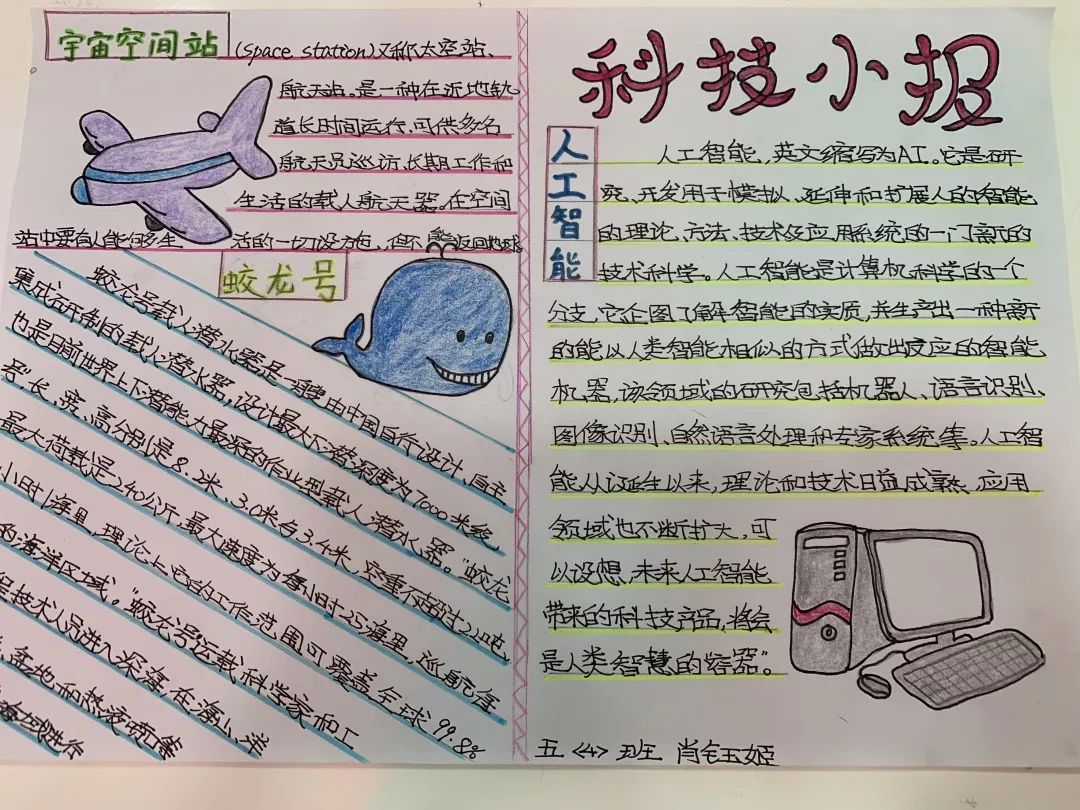 宇宙空间站
(Space station)又称太空站、
航天站。是一种在近地轨
道长时间运行、可供多名
航天员巡访、长期工作和
生活的载人航天器。在空间
站中要有人能够生活的一切设施,但不能返回地球
蛟龙号
蛟龙号载人潜水器是一艘由中国自行设计、自主
集成研制的载人潜水器,设计最大下潜深度为7000米级,
也是目前世界上下潜能力最深的作业型载人潜水器。“蛟龙
号”长、宽、高分别是8.2米、3.0米与3.4米,空重不超过22吨,
最大荷载是240公斤,最大速度为每小时25海里,巡航每
小时1海里,理论上它的工作范围可覆盖全球99.8%
的海洋区域。“蛟龙号”运载科学家和工
程技术人员进入深海,在海山、洋
盆地和热液喷口等
海域进行
科技小报
人工智能
人工智能,英文缩写为AI。它是研
究、开发用于模拟、延伸和扩展人的智能
的理论、方法、技术及应用系统的一门新的
技术科学。人工智能是计算机科学的一个
分支,它企图了解智能的实质,并生产出一种新
的能以人类智能相似的方式做出反应的智能
机器,该领域的研究包括机器人、语言识别、
图像识别、自然语言处理和专家系统等。人工智
能从诞生以来,理论和技术日益成熟、应用
领域也不断扩大,可
以设想,未来人工智能
带来的科技产品,将会
是人类智慧的“容器”。
五<4>班 肖钰玉姬